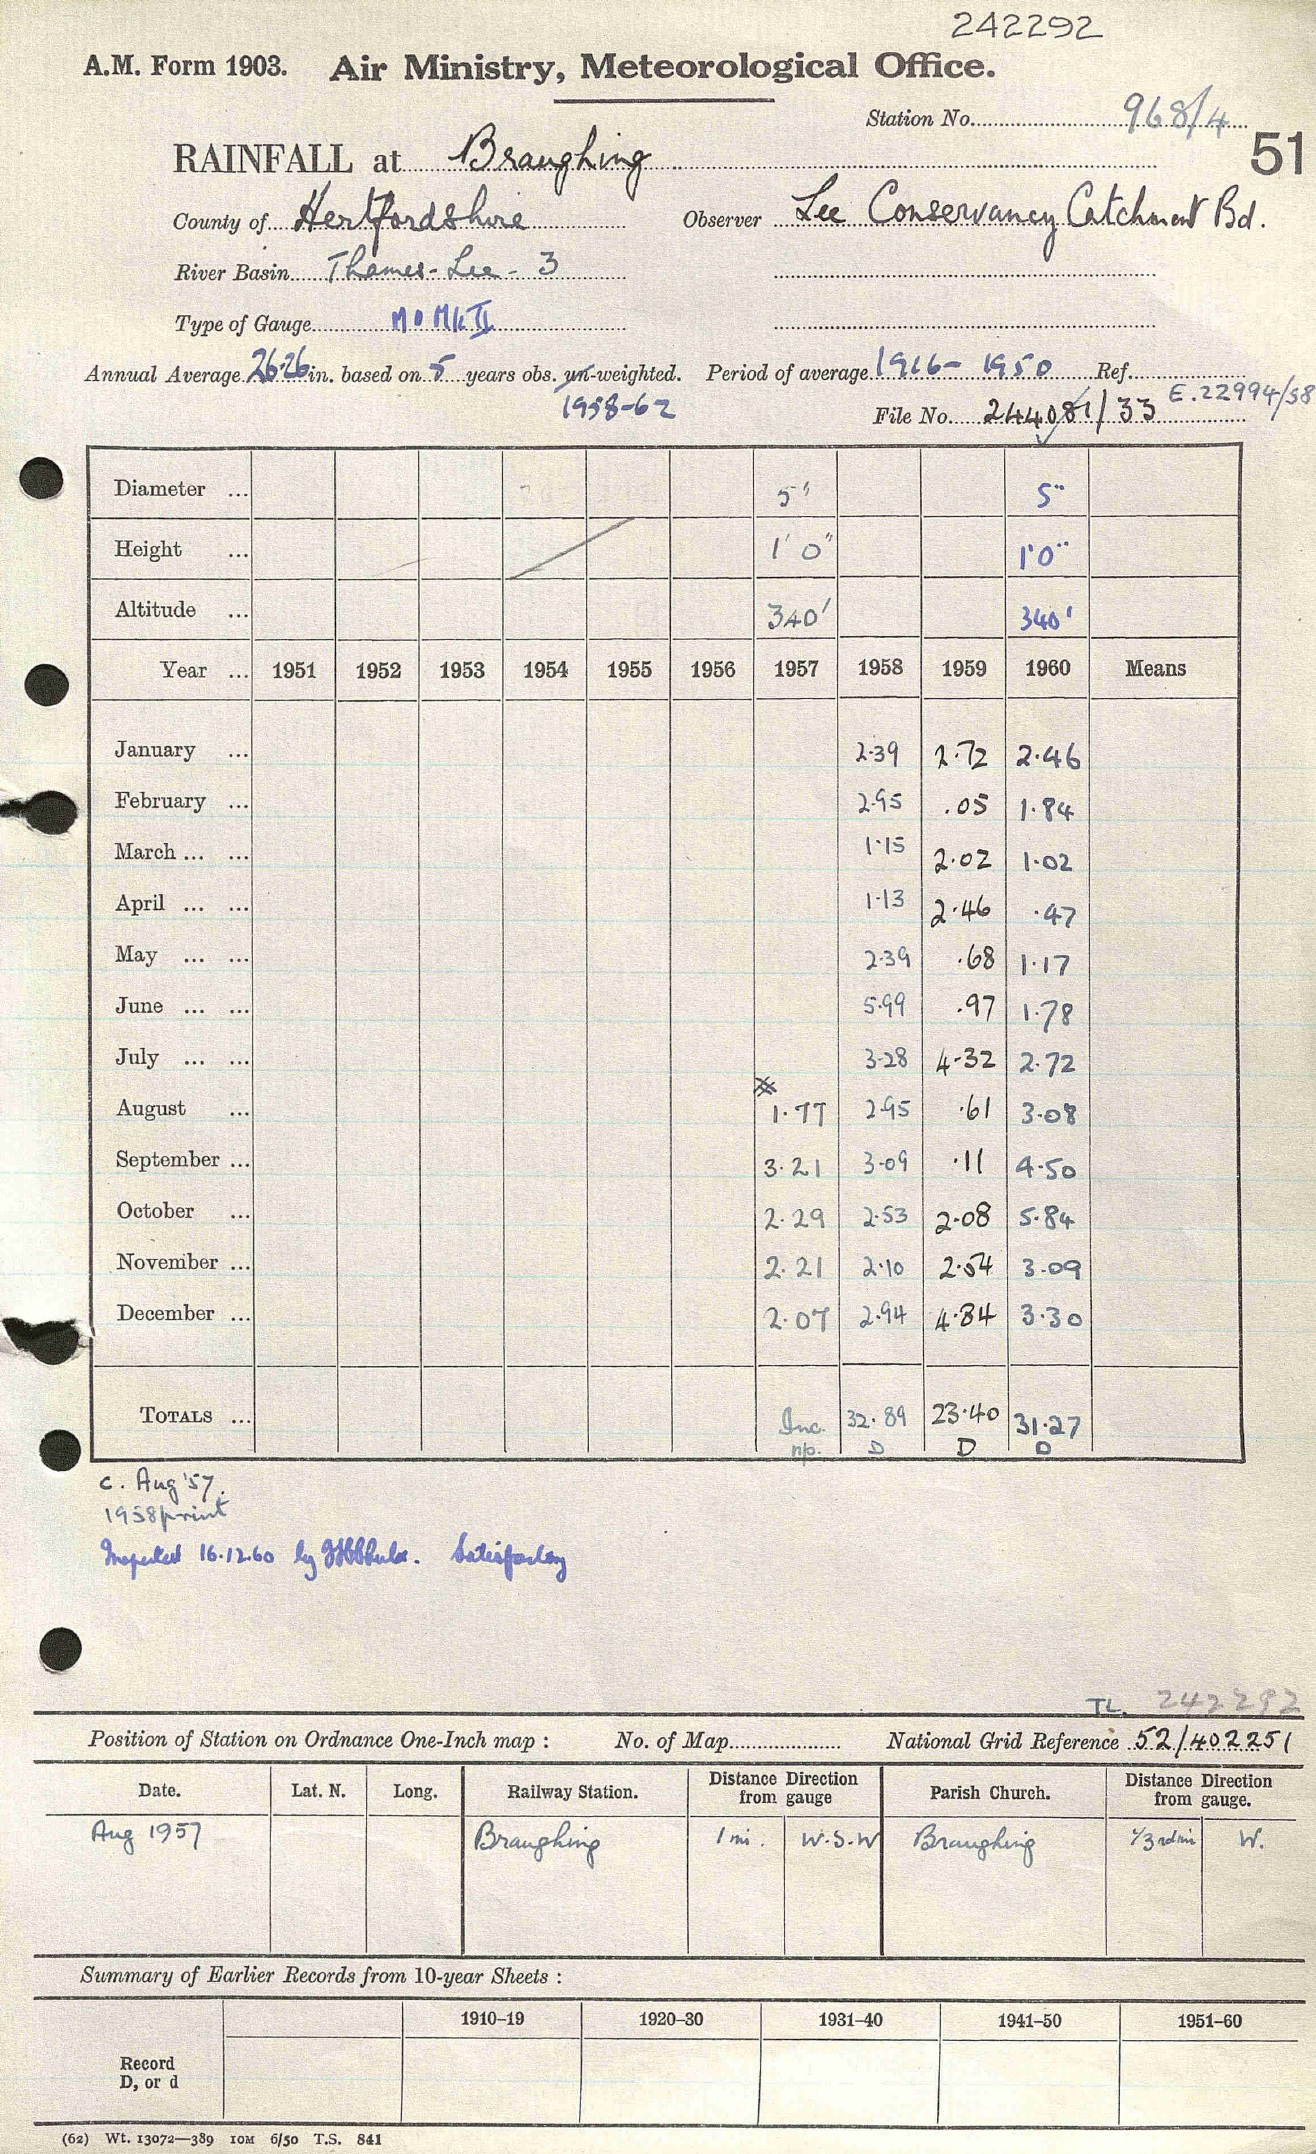 242292
A.M. Form 1903. Air Ministry, Meteorological Office.
Station No. 968/4
51
RAINFALL at Braughing
County of Hertfordshire Observer Lee Conservancy Catchment Bd.
River Basin Thames-Lee-3
Type of Gauge MO Mk II
Annual Average 26.26 in. based on 5 years obs. un-weighted. Period of average 1916-1950 Ref. E.22994/58
1958-62 File No. 244081/33
Diameter ... 5" 5"
Height ... 1' 0" 1'0"
Altitude ... 340' 340'
Year ... 1951 1952 1953 1954 1955 1956 1957 1958 1959 1960 Means
January ... 2.39 2.72 2.46
February ... 2.95 .05 1.84
March ... ... 1.15 2.02 1.02
April ... ... 1.13 2.46 .47
May ... ... 2.39 .68 1.17
June ... ... 5.99 .97 1.78
July ... ... 3.28 4.32 2.72
August ... 1.77 2.95 .61 3.08
September ... 3.21 3.09 .11 4.50
October ... 2.29 2.53 2.08 5.84
November ... 2.21 2.10 2.54 3.09
December ... 2.07 2.94 4.84 3.30
TOTALS ... Inc. 32.89 23.40 31.27
n/p. D D D
c. Aug '57.
1958 print
Inspected 16.12.60 by Satisfactory
TL. 242292
Position of Station on Ordnance One-Inch map : No. of Map National Grid Reference 52/402251
Date. Lat. N. Long. Railway Station. Distance Direction from gauge Parish Church. Distance Direction from gauge.
Aug 1957 Braughing 1 mi. W.S.W Braughing 1/3rd mi W.
Summary of Earlier Records from 10-year Sheets :
1910–19 1920–30 1931–40 1941–50 1951–60
Record
D, or d
(62) Wt. 13072—389 10M 6/50 T.S. 841